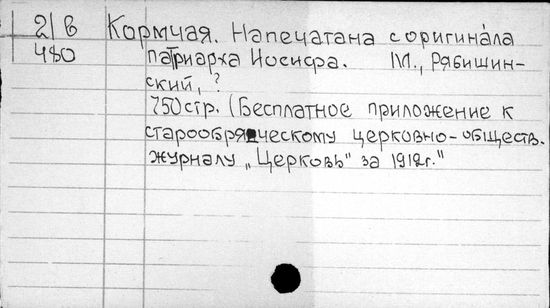 21 в Кормчая. Напечатана с оригинала
480 патриарха Иосифа. М., Рябишин-
ский, ?
750стр. (Бесплатное приложение к
старообрядческому церковно-обществ.
журналу „Церковь" за 1912г."